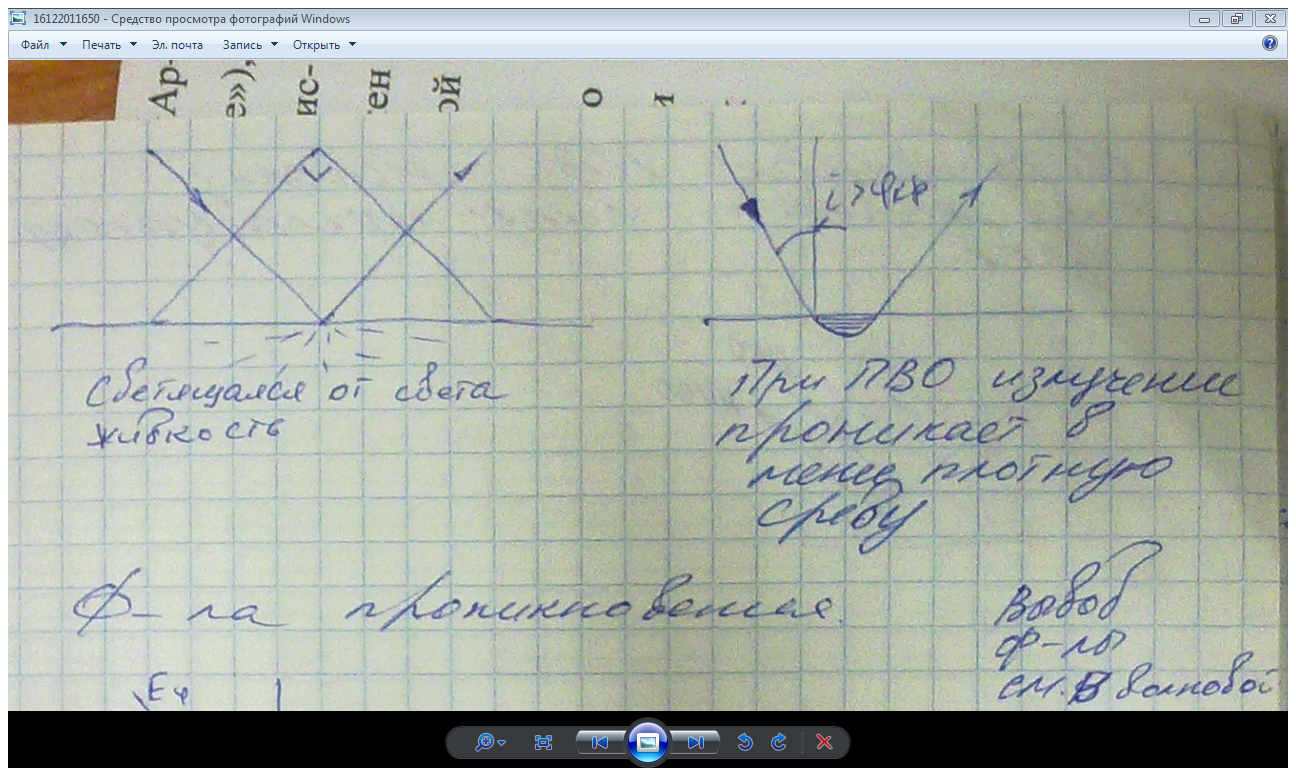 16122011650 - Средство просмотра фотографий Windows
Файл Печать Эл. почта Запись Открыть
Ар-
е»),
ис-
ен
ой
о
и
i > φкр
Светящаяся от света
жидкость
При ПВО излучение
проникает в
менее плотную
среду
Ф-ла проникновения.
Вывод
ф-лы
см. в волновой